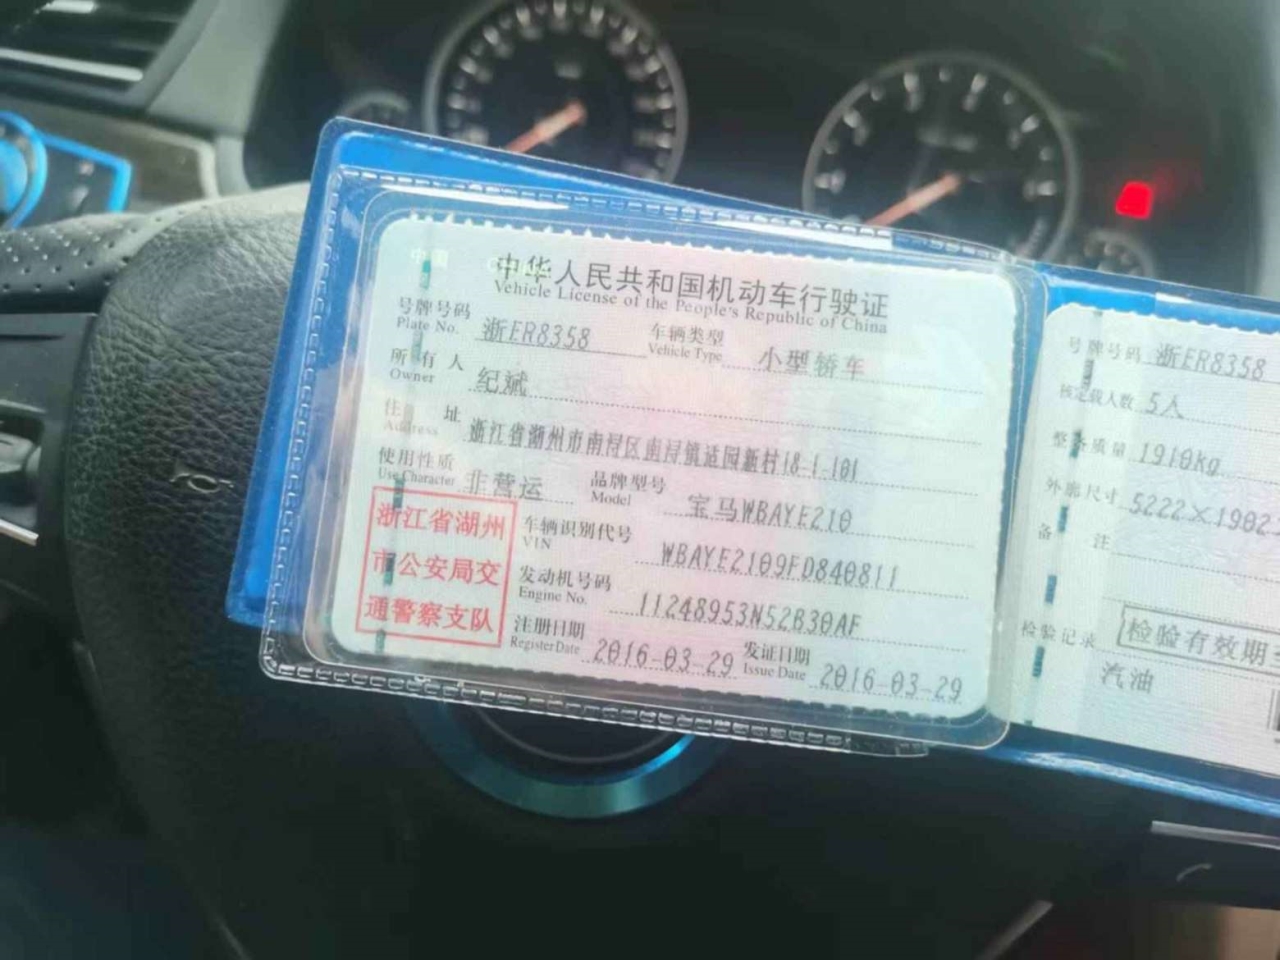 中华人民共和国机动车行驶证
Vehicle License of the People's Republic of China
号牌号码 浙ER8358 车辆类型 小型轿车
Plate No. Vehicle Type
所有人 纪斌
Owner
住 址 浙江省湖州市南浔区南浔镇适园新村18-1-101
Address
使用性质 非营运 品牌型号 宝马WBAYE210
Use Character Model
浙江省湖州
市公安局交
通警察支队
车辆识别代号 WBAYE2109FD840811
VIN
发动机号码 11248953N52B30AF
Engine No.
注册日期 2016-03-29 发证日期 2016-03-29
Register Date Issue Date
号牌号码 浙ER8358
核定载人数 5人
整备质量 1910kg
外廓尺寸 5222×1902
备 注
检验记录 检验有效期
汽油